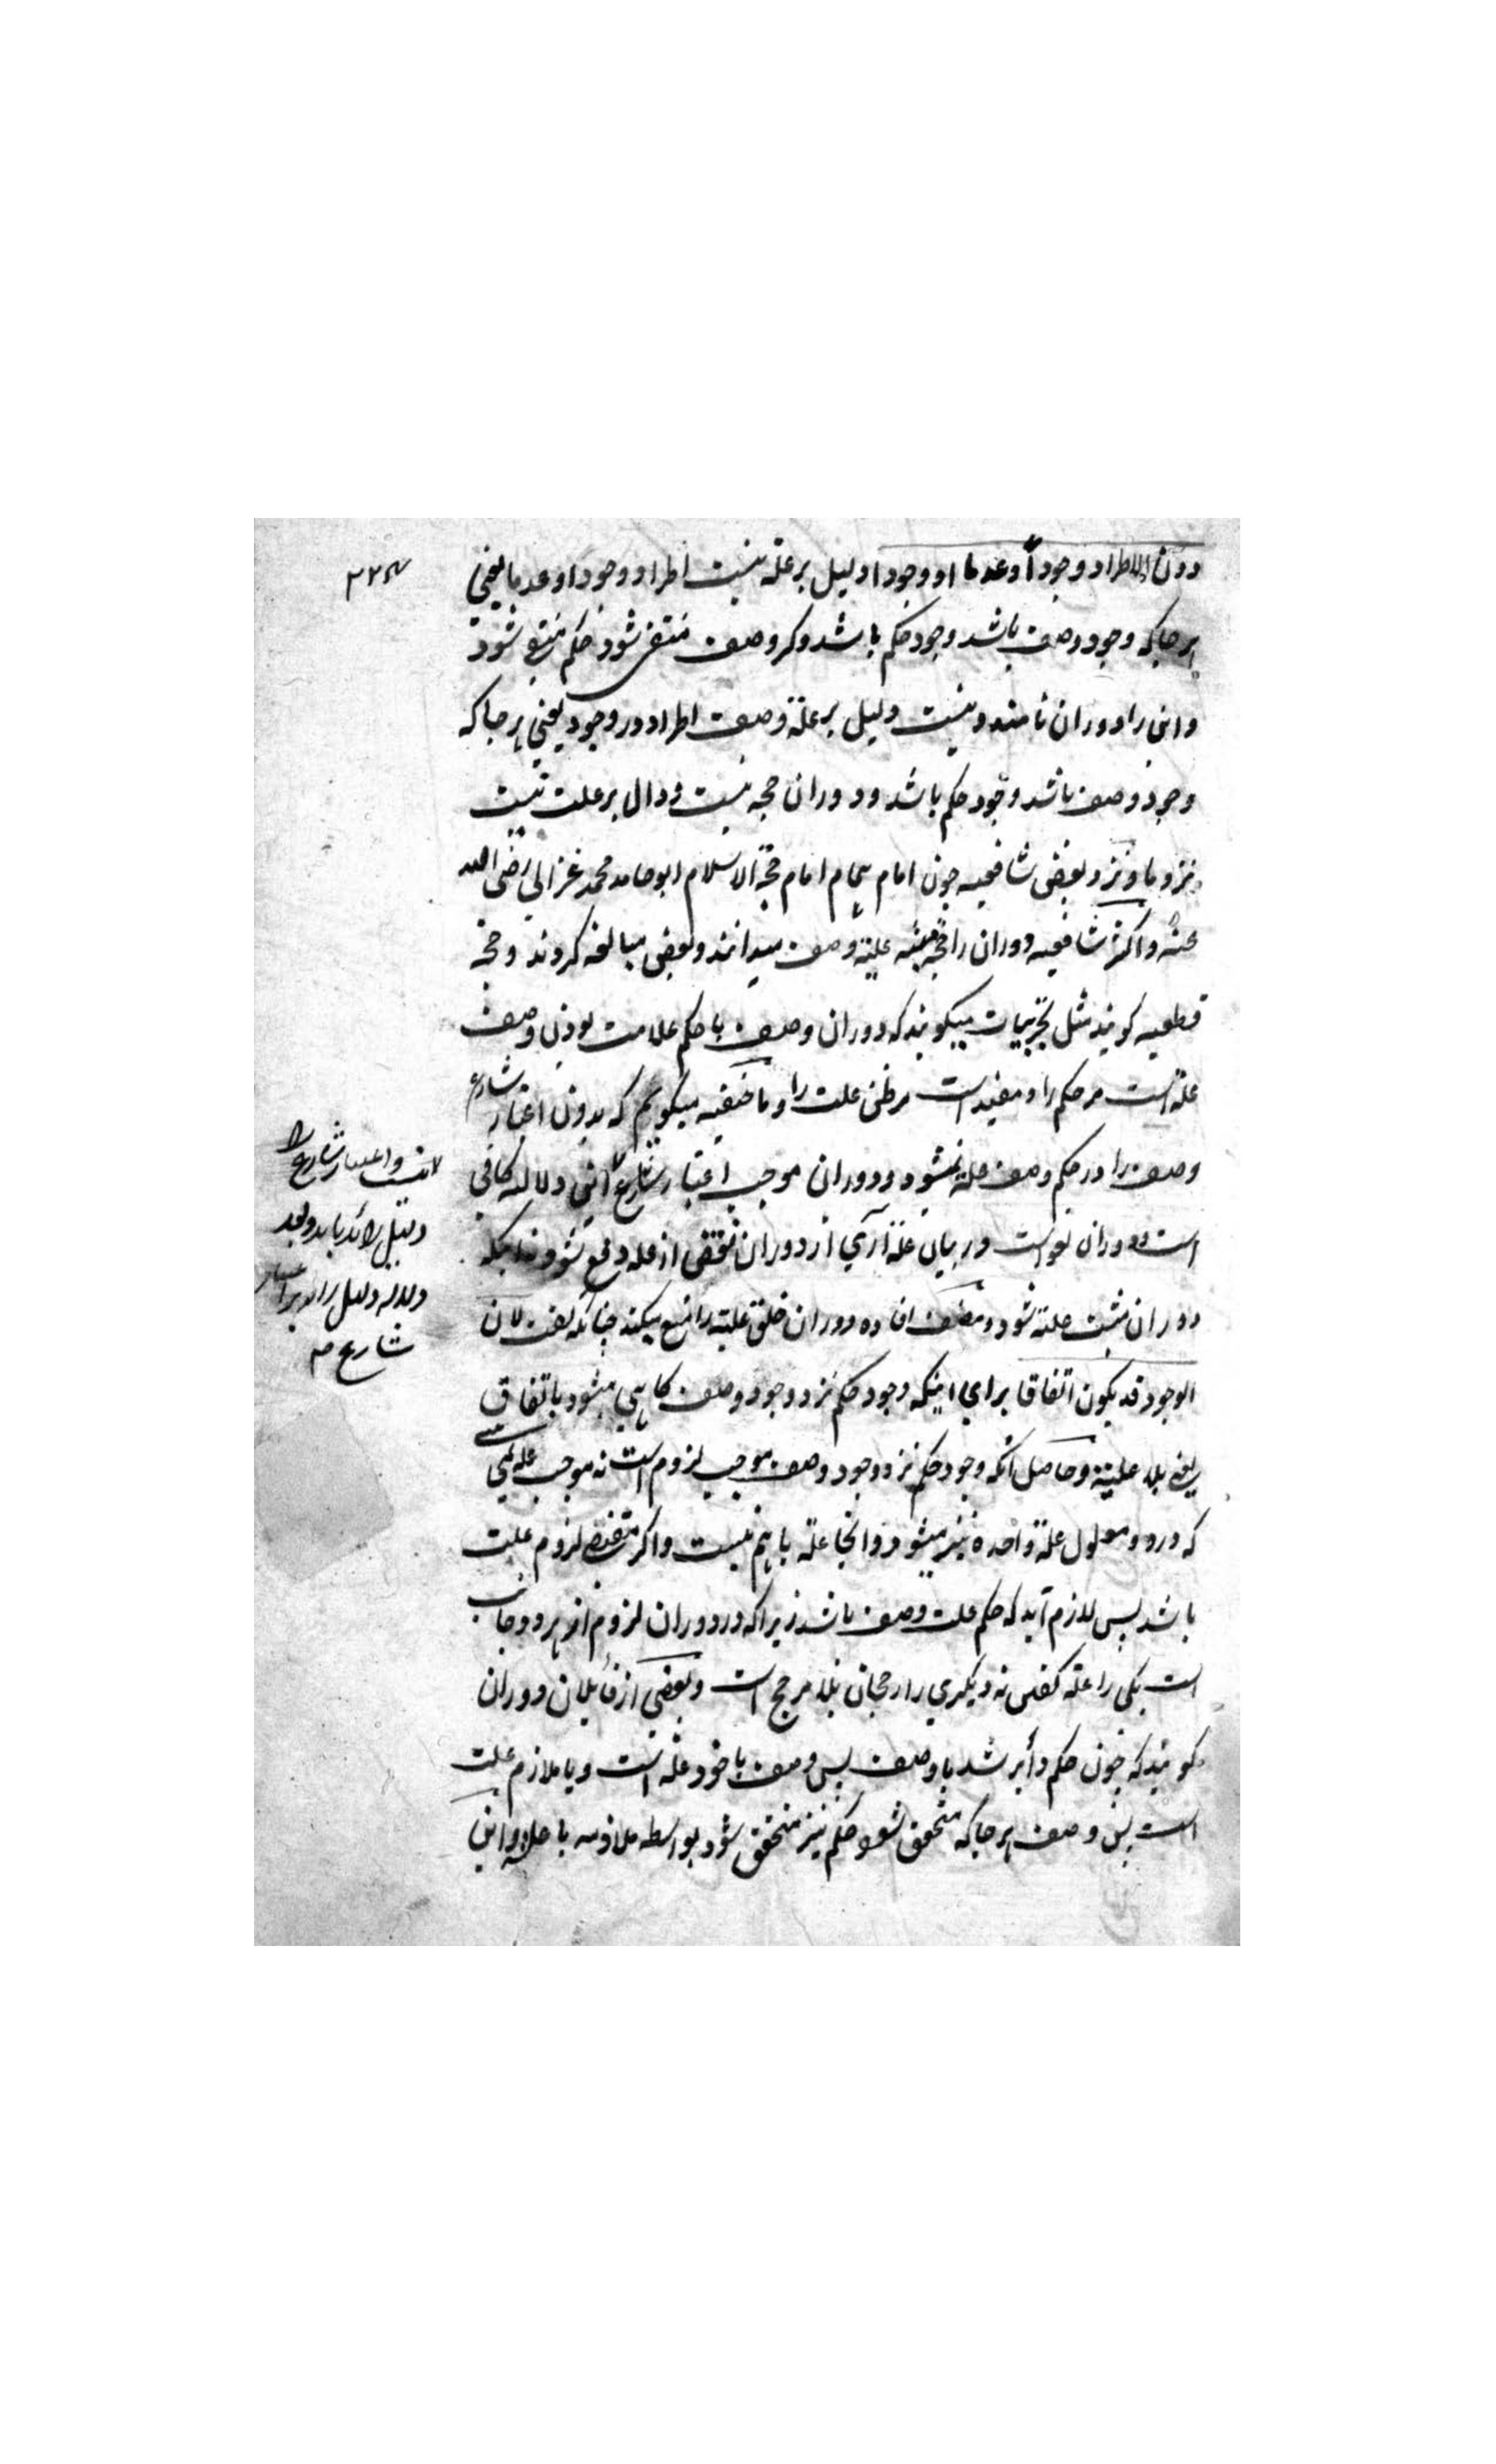 دون الاطراد وجوداً وعدما او وجودا دلیل بر علة نیست اطراد وجودا وعدما یعنی
هر جا که وجود وصف باشد وجود حکم باشد وکر وصف منتفی شود حکم منتفی شود
واین را دوران نامند ونیست دلیل بر علة وصف اطراد در وجود یعنی هر جا که
وجود وصف باشد وجود حکم باشد ودوران حجه نیست ودال بر علت نیست
نزد ما ونزد بعضی شافعیه چون امام همام امام حجة الاسلام ابو حامد محمد غزالی رضی الله
عنه واکثر شافعیه دوران را حجه علیة وصف میدانند وبعضی مبالغه کردند وحجه
قطعیه کویند مثل تجربیات میکویند که دوران وصف با حکم علامت بودن وصف
علة است مر حکم را ومفید است مر ظن علت را وما حنفیه میکویم که بدون اعتبار شارع
وصف را در حکم وصف علة نمیشود ودوران موجب اعتبار شارع دلاله کافی
است دوران لغو است در بیان علة آری از دوران نقض از عله دفع شود نه اینکه
دوران مثبت علة شود افاده دوران ظن علیة را منع میکند چنانکه کفت لان
الوجود قد یکون اتفاقا برای اینکه وجود حکم نزد وجود وصف کاهی میشود باتفاق
یعنی بلا علیة وحاصل آنکه وجود حکم نزد وجود وصف موجب لزوم است نه موجب علة
که در دو معلول علة واحده نیز میشود وانجا علة باهم نیست واکر مقتضی لزوم علیت
باشد پس لازم آید که حکم علت وصف باشد زیرا که در دوران لزوم از هر دو جانب
است یکی را علة کفتن نه دیکری را رجحان بلا مرجح است وبعضی از قائلان دوران
کویند که چون حکم دائر شد با وصف پس وصف یا خود علة است ویا ملازم علت
است پس وصف هر جا که متحقق شود حکم نیز متحقق شود بواسطه ملازمه با علة واین
واعتبار شارع را
دلیل زائد باید
دلیل زائد بر اعتبار
شارع